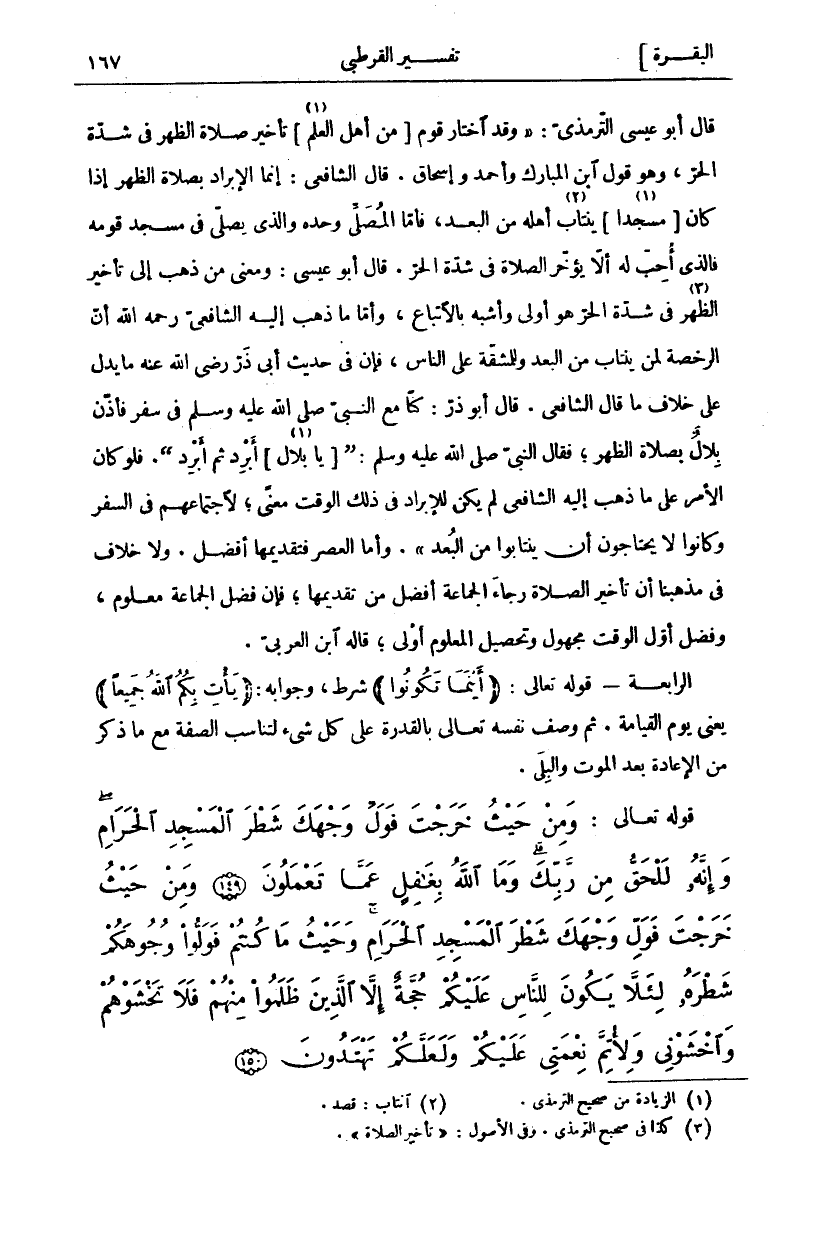 البقـــرة ] تفســـير القرطبى ١٦٧
قال أبو عيسى الترمذىّ : « وقد ٱختار قوم [ من أهل العلم ] (١) تأخير صلاة الظهر فى شدّة
الحرّ ، وهو قول ٱبن المبارك وأحمد و إسحاق . قال الشافعى : إنما الإبراد بصلاة الظهر إذا
كان [ مسجدا ] (١) ينتاب (٢) أهله من البعـد، فأمّا المُصَلِّى وحده والذى يصلّى فى مسجد قومه
فالذى أُحِبّ له ألّا يؤخّر الصلاة فى شدّة الحرّ . قال أبو عيسى : ومعنى من ذهب إلى تأخير
الظهر (٣) فى شدّة الحرّ هو أولى وأشبه بالٱتباع ، وأمّا ما ذهب إليــه الشافعىّ رحمه الله أنّ
الرخصة لمن ينتاب من البعد وللمشقّة على الناس ، فإن فى حديث أبى ذَرّ رضى الله عنه ما يدل
على خلاف ما قال الشافعى . قال أبو ذرّ : كنّا مع النـبىّ صلى الله عليه وسلـم فى سفر فأذّن
بِلالٌ بصلاة الظهر ؛ فقال النبىّ صلى الله عليه وسلم : ” [ يا بلال ] (١) أَبْرِد ثم أَبْرِد “ . فلو كان
الأمر على ما ذهب إليه الشافعى لم يكن للإبراد فى ذلك الوقت معنًى ؛ لٱجتماعهــم فى السفر
وكانوا لا يحتاجون أن ينتابوا من البُعد » . وأما العصر فتقديمها أفضــل . ولا خلاف
فى مذهبنا أن تأخير الصـلاة رجاءَ الجماعة أفضل من تقديمها ؛ فإن فضل الجماعة معـلوم ،
وفضل أوّل الوقت مجهول وتحصيل المعلوم أوْلى ؛ قاله ٱبن العربىّ .
الرابعــة — قوله تعالى : ﴿ أَيْنَمَا تَكُونُوا ﴾ شرط ، وجوابه : ﴿ يَأْتِ بِكُمُ ٱللهُ جَمِيعًا ﴾
يعنى يوم القيامة . ثم وصف نفسه تعـالى بالقدرة على كل شىء لتناسب الصفة مع ما ذكر
من الإعادة بعد الموت والبِلَى .
قوله تعـالى : وَمِنْ حَيْثُ خَرَجْتَ فَوَلِّ وَجْهَكَ شَطْرَ ٱلْمَسْجِدِ ٱلْحَرَامِ ۖ
وَإِنَّهُۥ لَلْحَقُّ مِن رَّبِّكَ ۗ وَمَا ٱللَّهُ بِغَٰفِلٍ عَمَّا تَعْمَلُونَ ١٤٩ وَمِنْ حَيْثُ
خَرَجْتَ فَوَلِّ وَجْهَكَ شَطْرَ ٱلْمَسْجِدِ ٱلْحَرَامِ ۚ وَحَيْثُ مَا كُنتُمْ فَوَلُّوا۟ وُجُوهَكُمْ
شَطْرَهُۥ لِئَلَّا يَكُونَ لِلنَّاسِ عَلَيْكُمْ حُجَّةٌ إِلَّا ٱلَّذِينَ ظَلَمُوا۟ مِنْهُمْ فَلَا تَخْشَوْهُمْ
وَٱخْشَوْنِى وَلِأُتِمَّ نِعْمَتِى عَلَيْكُمْ وَلَعَلَّكُمْ تَهْتَدُونَ ١٥٠
(١) الزيادة من صحيح الترمذى . (٢) ٱنتاب : قصد .
(٣) كذا فى صحيح الترمذى . وفى الأصول : « تأخير الصلاة » .